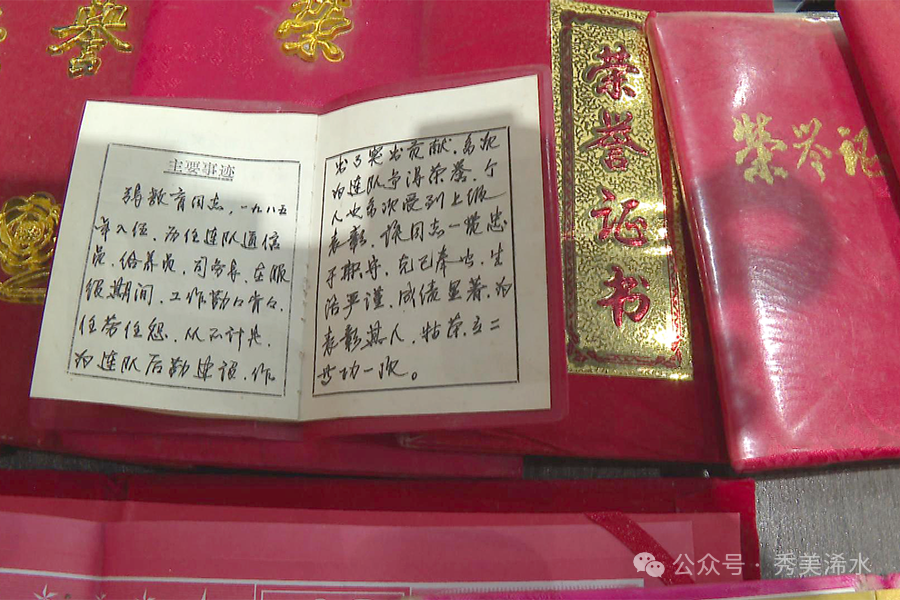 誉
荣
荣誉证书
荣誉证
主要事迹
张教育同志，一九八五
年入伍，历任连队通信
员，给养员，司务长，在服
役期间，工作勤勤肯肯，
任劳任怨，从不计是
为连队后勤建设，作
出了突出贡献，多次
为连队争得荣誉，个
人也多次受到上级
表彰，该同志一贯忠
于职守，克己奉公，生
活严谨，成绩显著，为
表彰其人，特荣立二
等功一次。
公众号·秀美浠水